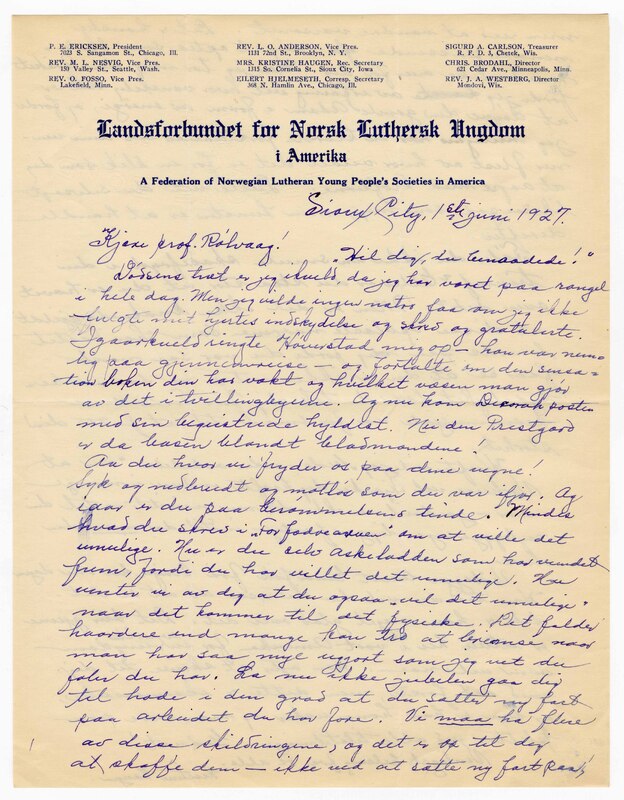 P. E. ERICKSEN, President
7023 S. Sangamon St., Chicago, Ill.
REV. M. L. NESVIG, Vice Pres.
153 Valley St., Seattle, Wash.
REV. O. FOSSO, Vice Pres.
Lakefield, Minn.
REV. L. O. ANDERSON, Vice Pres.
1131 72nd St., Brooklyn, N. Y.
MRS. KRISTINE HAUGEN, Rec. Secretary
1315 So. Cornelia St., Sioux City, Iowa
EILERT HJELMESETH, Corresp. Secretary
368 N. Hamlin Ave., Chicago, Ill.
SIGURD A. CARLSON, Treasurer
R. F. D. 3, Chetek, Wis.
CHRIS. BRODAHL, Director
621 Cedar Ave., Minneapolis, Minn.
REV. J. A. WESTBERG, Director
Mondovi, Wis.
Landsforbundet for Norsk Luthersk Ungdom
i Amerika
A Federation of Norwegian Lutheran Young People's Societies in America
Sioux City, 1ste juni 1927.
Kjære prof. Rölvaag! "Hil dig, du benaadede!"
Dödsens træt er jeg ikveld, da jeg har været paa rangel
i hele dag. Men jeg vilde ingen natro faa om jeg ikke
fulgte mit hjertes indskydelse og skrev og gratulerte.
Igaarkveld ringte Hoverstad mig op – han var nem-
lig paa gjennemreise – og fortalte om den sensa-
tion boken din har vakt og hvilket væsen man gjør
av det i tvillingbyerne. Og nu kom Decorah posten
med sin begeistrede hyldest. Nei den Prestgard
er da basen blandt bladmændene!
Aa du hvor vi fryder os paa dine vegne!
Syk og nedbrudt og motløs som du var ifjor. Og
iaar er du paa berömmelsens tinde. Mindes
hvad du skrev i "For fædrearven" om at ville det
umulige. Nu er du selv askeladden som har vundet
frem, fordi du har villet det umulige. Nu
venter vi av dig at du ogsaa "vil det umulige"
naar det kommer til det fysiske. Det falder
haardere end mange kan tro at bremse naar
man har saa mye ugjort som jeg vet du
føler du har. La nu ikke jubelen gaa dig
til hode i den grad at du sætter ny fart
paa arbeidet du har fore. Vi maa ha flere
av disse skildringene, og det er op til dig
at skaffe dem – ikke ved at sætte ny fart paa,